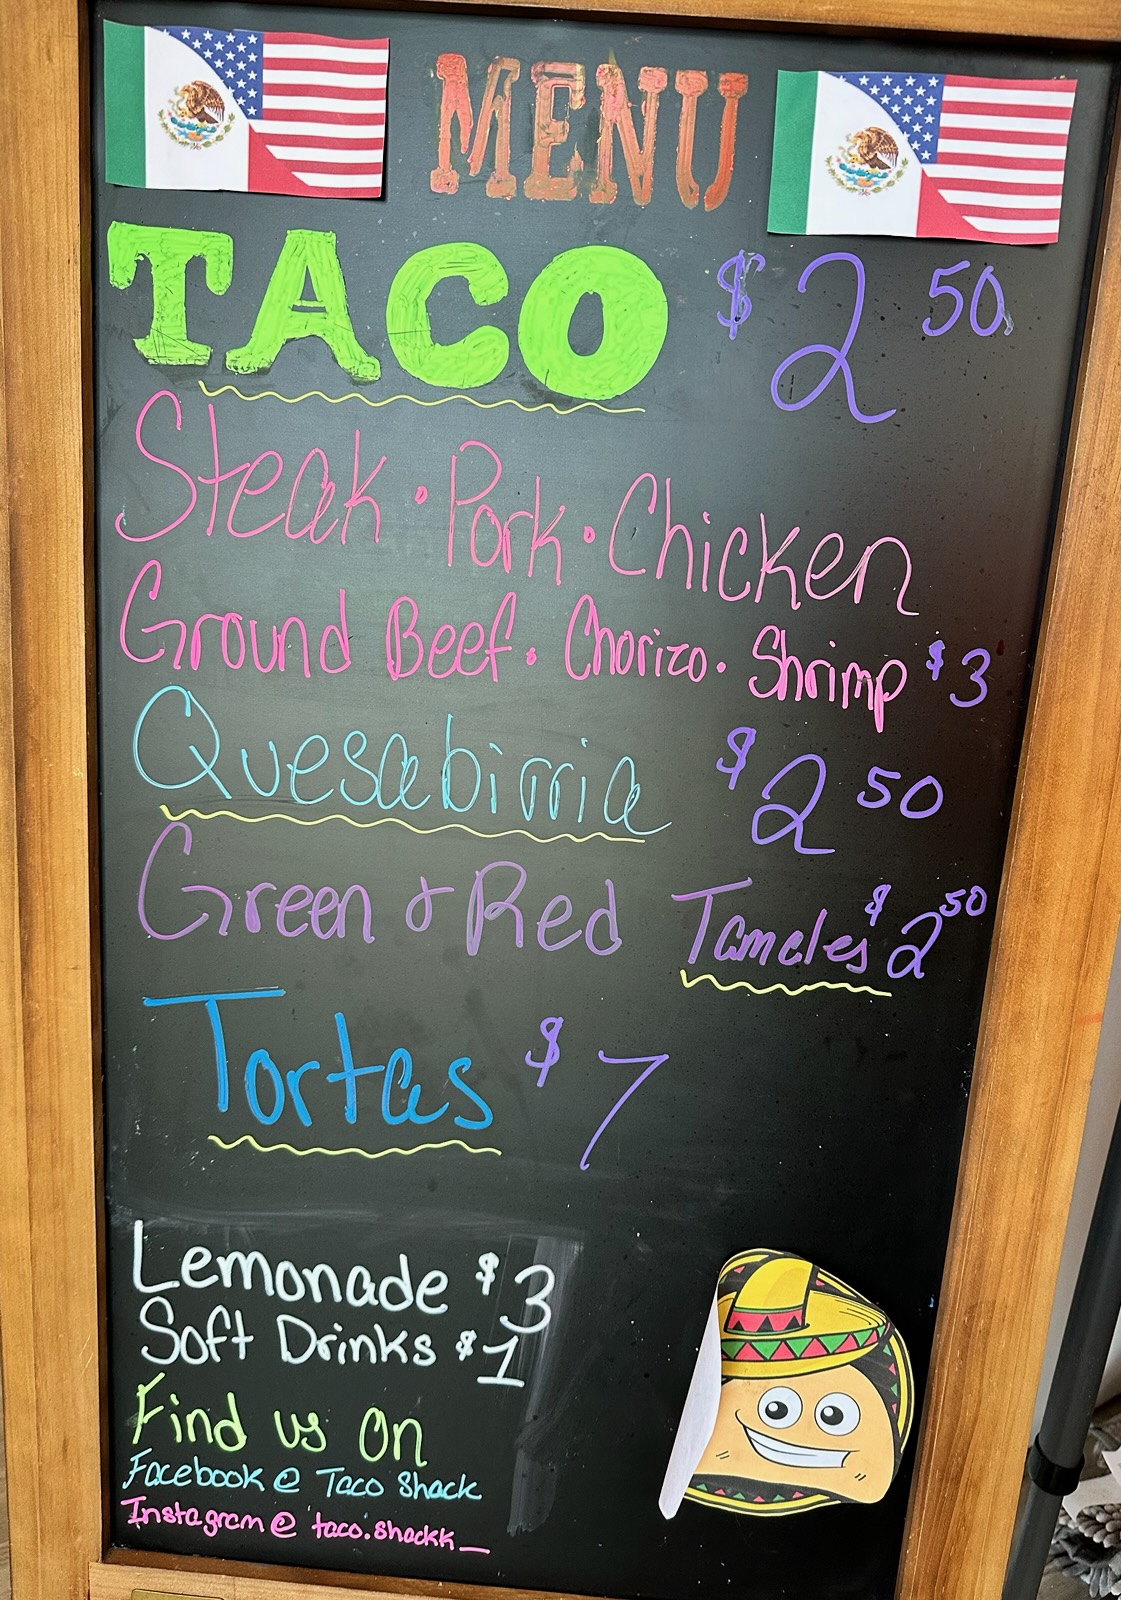 MENU
TACO $2 50
Steak · Pork · Chicken
Ground Beef · Chorizo · Shrimp $3
Quesabirria $2 50
Green & Red Tamales $2 50
Tortas $7
Lemonade $3
Soft Drinks $1
Find us on
Facebook @ Taco Shack
Instagram @ taco.shackk_